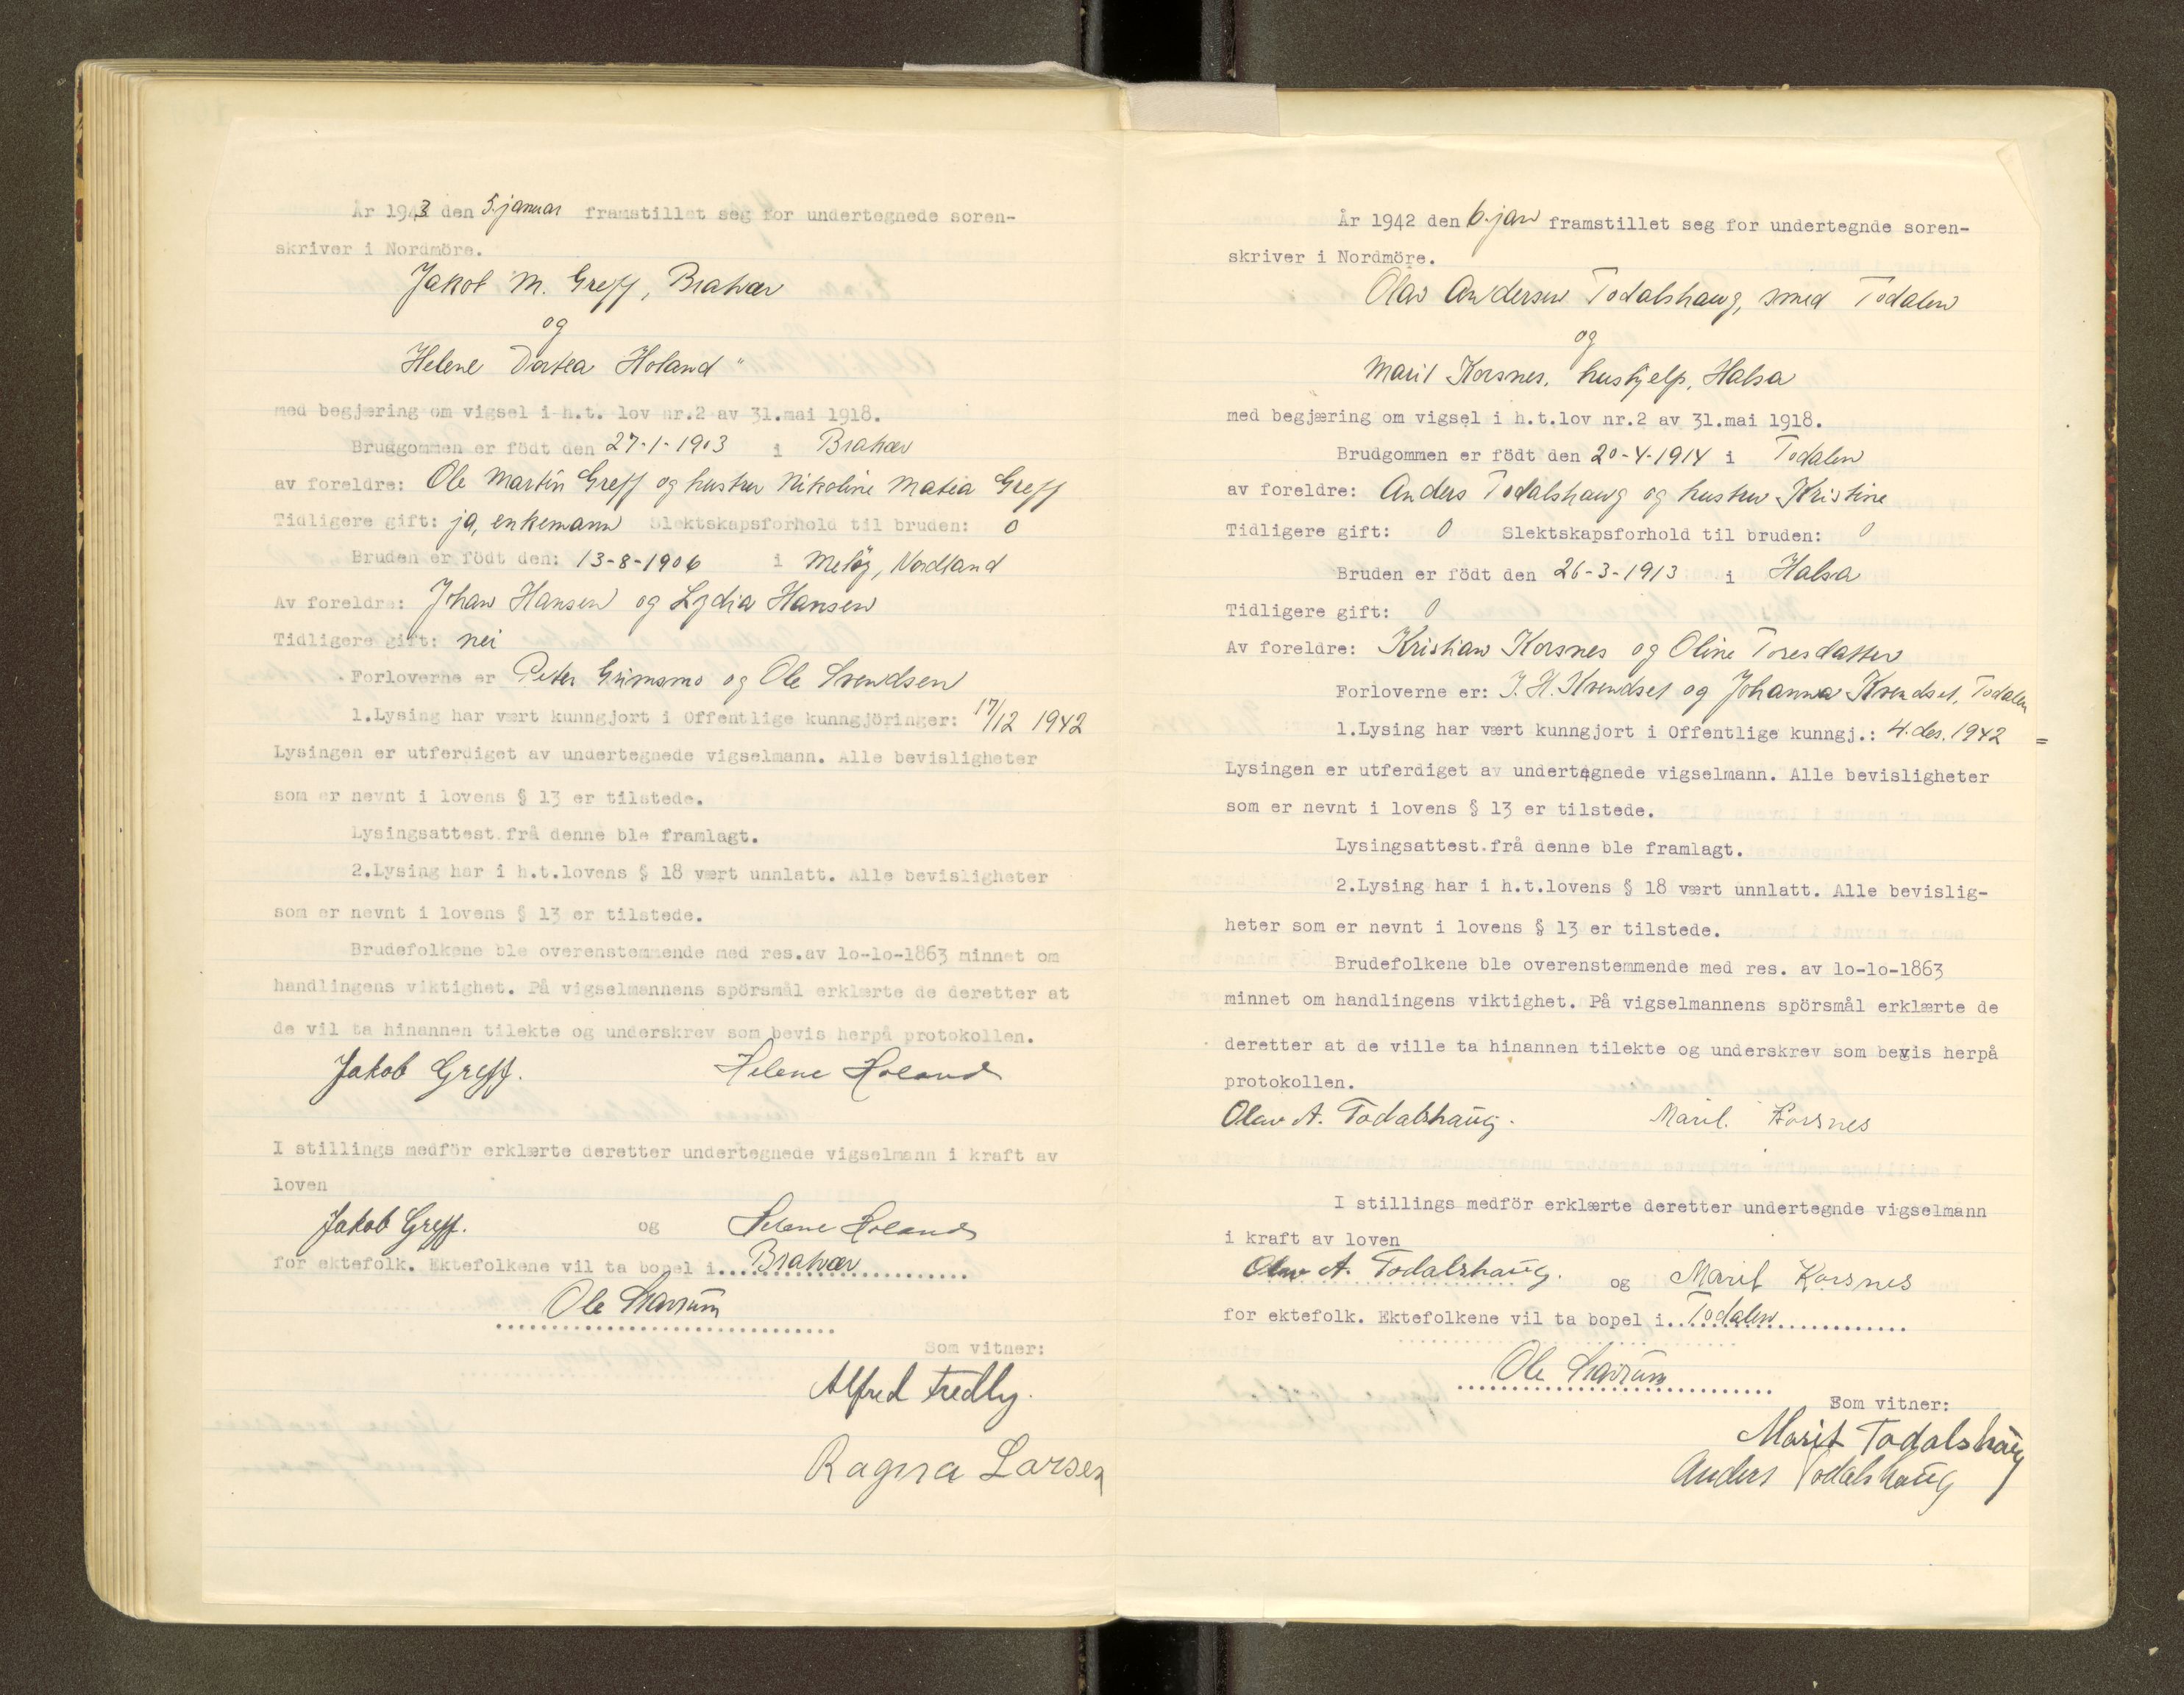 År 1943 den 5. januar framstillet seg for undertegnede soren-
skriver i Nordmöre.
Jakob M. Greff, Brattvær
og
Helene Dortea Holand "
med begjæring om vigsel i h.t. lov nr.2 av 31.mai 1918.
Bruggommen er födt den 27-1-1903 i Brattvær
av foreldre: Ole Martin Greff og hustru Nikoline Matea Greff
Tidligere gift: ja, enkemann Slektskapsforhold til bruden: 0
Bruden er födt den: 13-8-1906 i Melöy, Nordland
Av foreldre: Johan Hansen og Lydia Hansen
Tidligere gift: nei
Forloverne er Peter Grimsmo og Ole Svendsen
1.Lysing har vært kunngjort i Offentlige kunngjöringer: 17/12 1942
Lysingen er utferdiget av undertegnede vigselmann. Alle bevisligheter
som er nevnt i lovens § 13 er tilstede.
Lysingsattest.frå denne ble framlagt.
2.Lysing har i h.t.lovens § 18 vært unnlatt. Alle bevisligheter
som er nevnt i lovens § 13 er tilstede.
Brudefolkene ble overenstemmende med res.av lo-lo-1863 minnet om
handlingens viktighet. På vigselmannens spörsmål erklærte de deretter at
de vil ta hinannen tilekte og underskrev som bevis herpå protokollen.
Jakob Greff. Helene Holand
I stillings medför erklærte deretter undertegnede vigselmann i kraft av
loven
Jakob Greff. og Helene Holand
for ektefolk. Ektefolkene vil ta bopel i...Brattvær...
Ole Skarsum
Som vitner:
Alfred Fredly.
Ragna Larsen
År 1942 den 6. jan framstillet seg for undertegnde soren-
skriver i Nordmöre.
Olav Andersen Todalshaug, smed Todalen
og
Marit Korsnes, hushjelp, Halsa
med begjæring om vigsel i h.t.lov nr.2 av 31.mai 1918.
Brudgommen er födt den 20-4-1914 i Todalen
av foreldre: Anders Todalshaug og hustru Kristine
Tidligere gift: 0 Slektskapsforhold til bruden: 0
Bruden er födt den 26-3-1913 i Halsa
Tidligere gift: 0
Av foreldre: Kristian Korsnes og Oline Toresdatter
Forloverne er: J. H. Kvendset og Johanna Kvendset, Todalen
1.Lysing har vært kunngjort i Offentlige kunngj.: 4. des. 1942 =
Lysingen er utferdiget av undertegnede vigselmann. Alle bevisligheter
som er nevnt i lovens § 13 er tilstede.
Lysingsattest.frå denne ble framlagt.
2.Lysing har i h.t.lovens § 18 vært unnlatt. Alle bevislig-
heter som er nevnt i lovens § 13 er tilstede.
Brudefolkene ble overenstemmende med res. av lo-lo-1863
minnet om handlingens viktighet. På vigselmannens spörsmål erklærte de
deretter at de ville ta hinannen tilekte og underskrev som bevis herpå
protokollen.
Olav A. Todalshaug. Marit Korsnes
I stillings medför erklærte deretter undertegnde vigselmann
i kraft av loven
Olav A. Todalshaug. og Marit Korsnes
for ektefolk. Ektefolkene vil ta bopel i..Todalen...
Ole Skarsum
Som vitner:
Marit Todalshaug
Anders Todalshaug